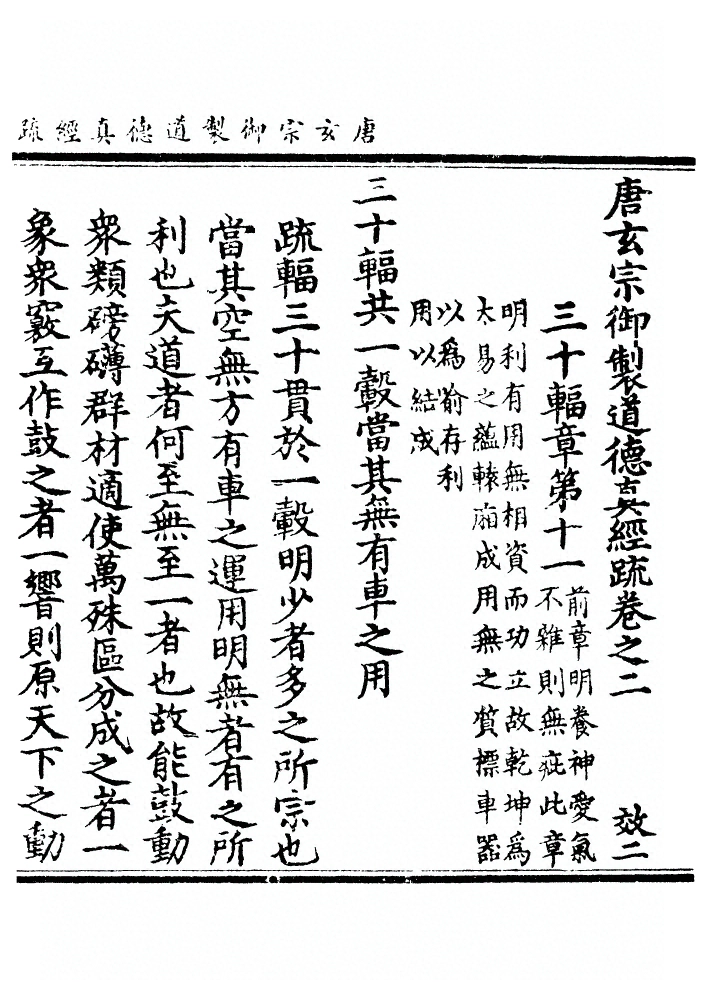 唐玄宗御製道德真經疏
唐玄宗御製道德真經疏卷之二 效二
三十輻章第十一
前章明養神愛氣
不雜則無疵此章
明利有用無相資而功立故乾坤為
太易之蘊轅廂成用無之質標車器
以為喻存利
用以結成
三十輻共一轂當其無有車之用
疏輻三十貫於一轂明少者多之所宗也
當其空無方有車之運用明無者有之所
利也夫道者何至無至一者也故能鼓動
衆類磅礴群材適使萬殊區分成之者一
象衆竅互作鼓之者一響則原天下之動